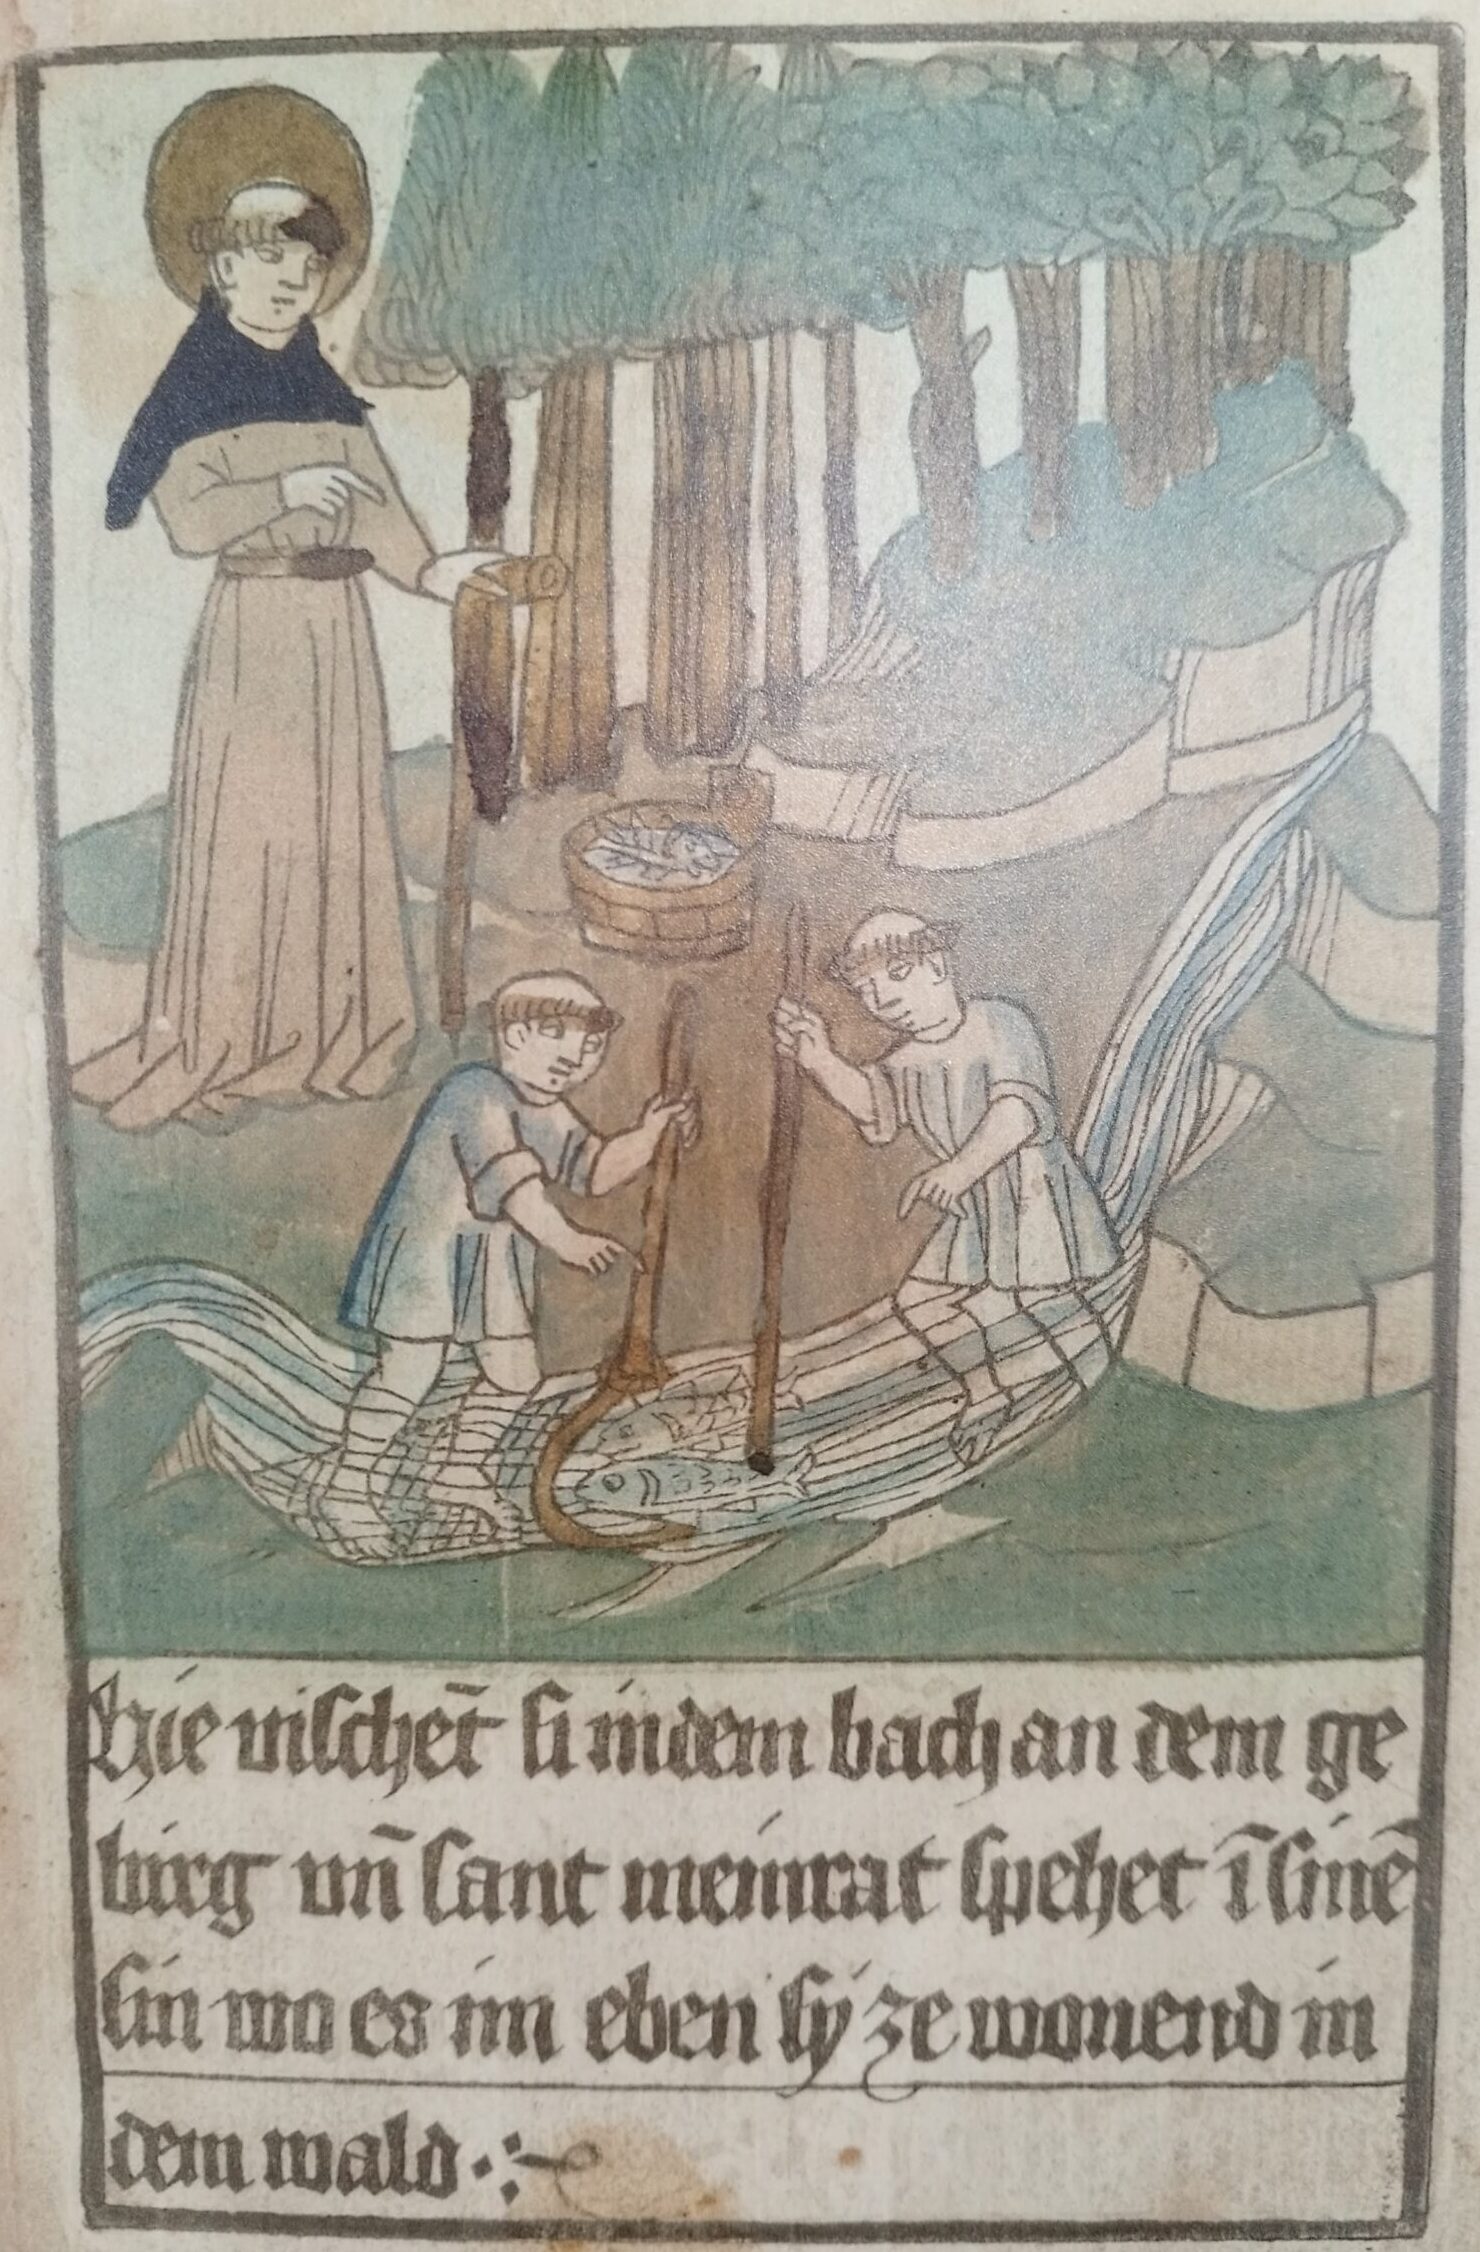 Hie vischet̄ si in dem bach an dem ge
birg vn̄ sant meinrat spehet ī sinē
sin wo es im eben sy ze wonend in
dem wald